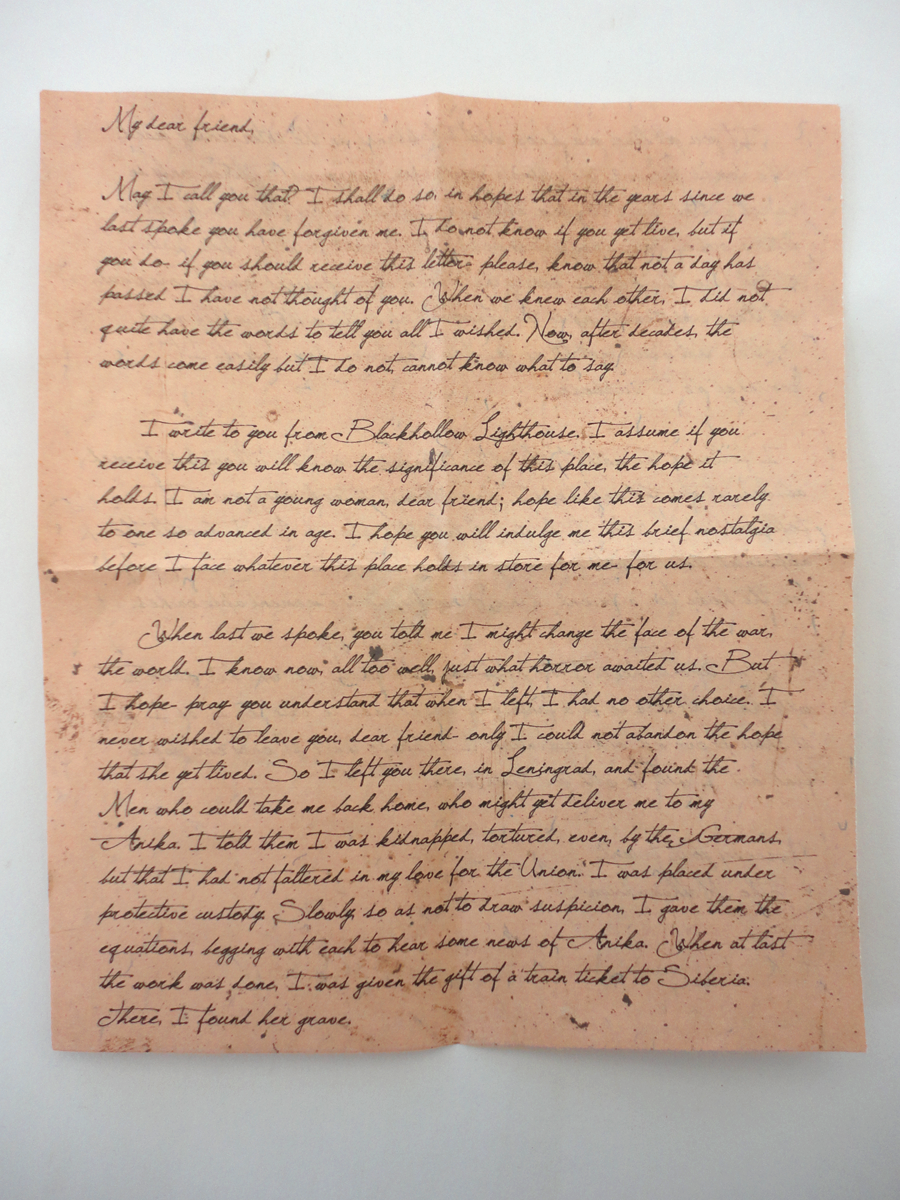 My dear friend,
May I call you that? I shall do so, in hopes that in the years since we
last spoke you have forgiven me. I do not know if you yet live, but if
you do- if you should receive this letter- please, know that not a day has
passed I have not thought of you. When we knew each other, I did not
quite have the words to tell you all I wished. Now, after decades, the
words come easily but I do not, cannot know what to say.
I write to you from Blackhollow Lighthouse. I assume if you
receive this you will know the significance of this place, the hope it
holds. I am not a young woman, dear friend; hope like this comes rarely
to one so advanced in age. I hope you will indulge me this brief nostalgia
before I face whatever this place holds in store for me- for us.
When last we spoke, you told me I might change the face of the war,
the world. I know now, all too well, just what horror awaited us. But
I hope- pray- you understand that when I left, I had no other choice. I
never wished to leave you, dear friend- only I could not abandon the hope
that she yet lived. So I left you there, in Leningrad, and found the
Men who could take me back home, who might yet deliver me to my
Anika. I told them I was kidnapped, tortured, even, by the Germans,
but that I had not faltered in my love for the Union. I was placed under
protective custody. Slowly, so as not to draw suspicion, I gave them the
equations, begging with each to hear some news of Anika. When at last
the work was done, I was given the gift of a train ticket to Siberia.
There, I found her grave.